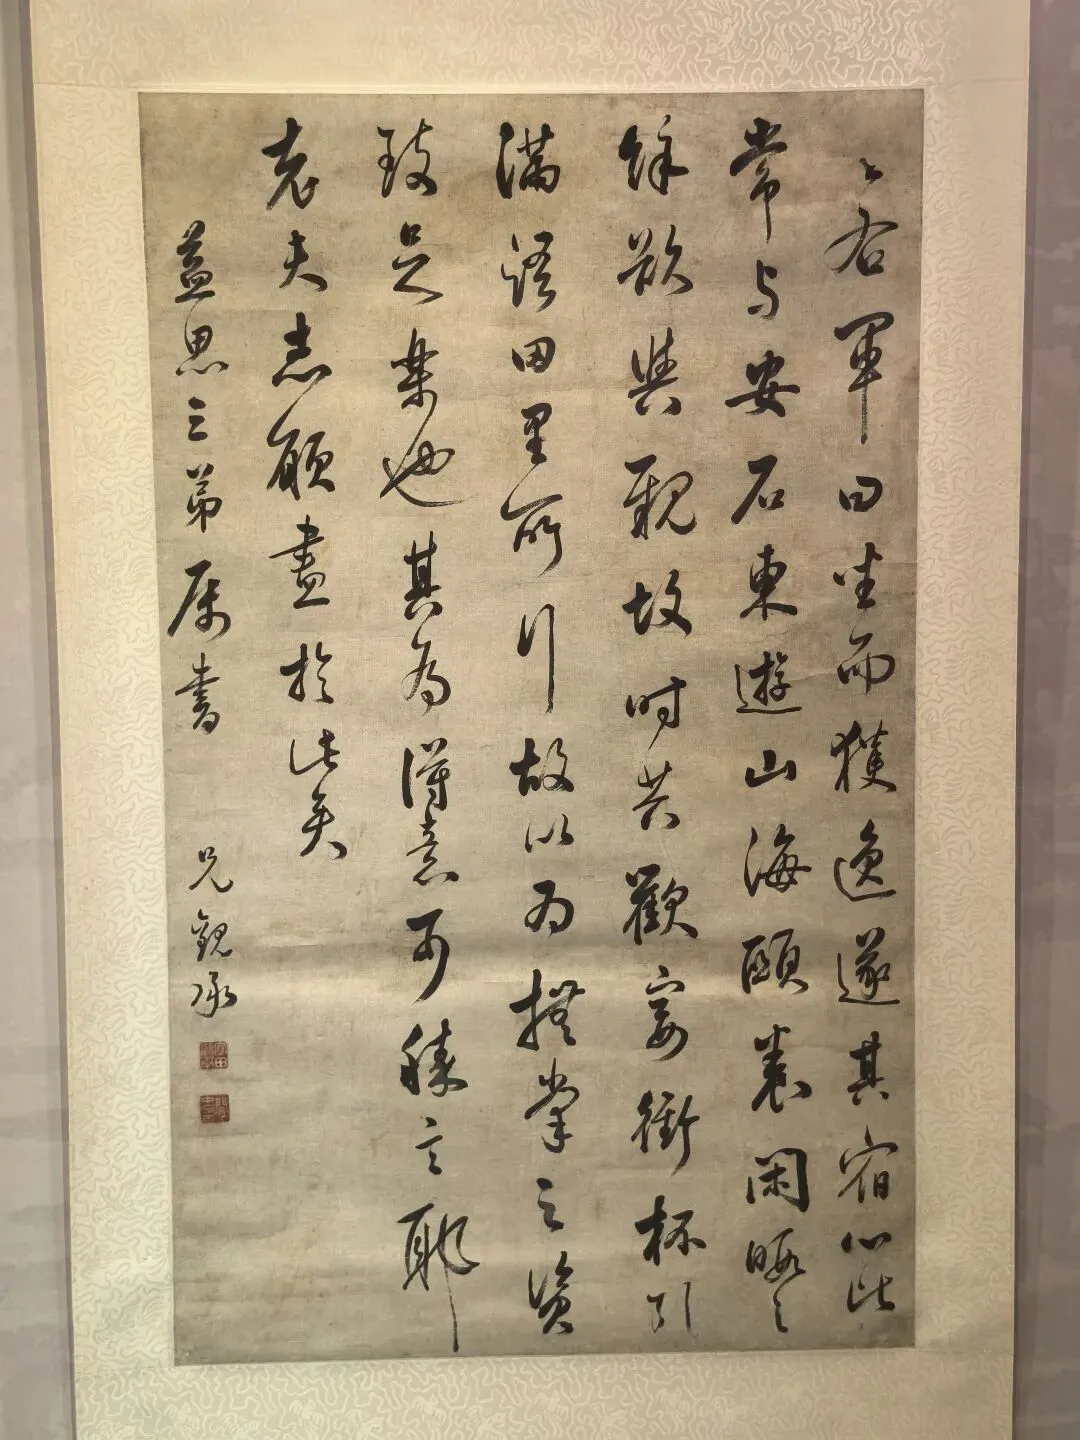 右軍曰坐而獲逸遂其宿心此
常与安石東遊山海頤養閑暇之
餘欲與親故时共歡宴衘杯引
滿語田里所行故以為撫掌之資
致足樂也其為得意可勝言耶
老夫志願盡於此矣
益思三弟属書 兄觀承